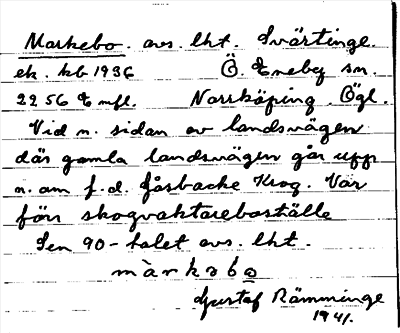 Markebo. avs. lht. Svärtinge.
ek. kb 1936 Ö. Eneby sn.
2256 Norrköping. Ögl.
Vid n. sidan av landsvägen
där gamla landsvägen går upp
n. om f.d. Åsbacke Krog. Var
förr skogvaktareboställe
Sen 90-talet avs. lht.
màrkəbo
Gustaf Rämminge
1941.